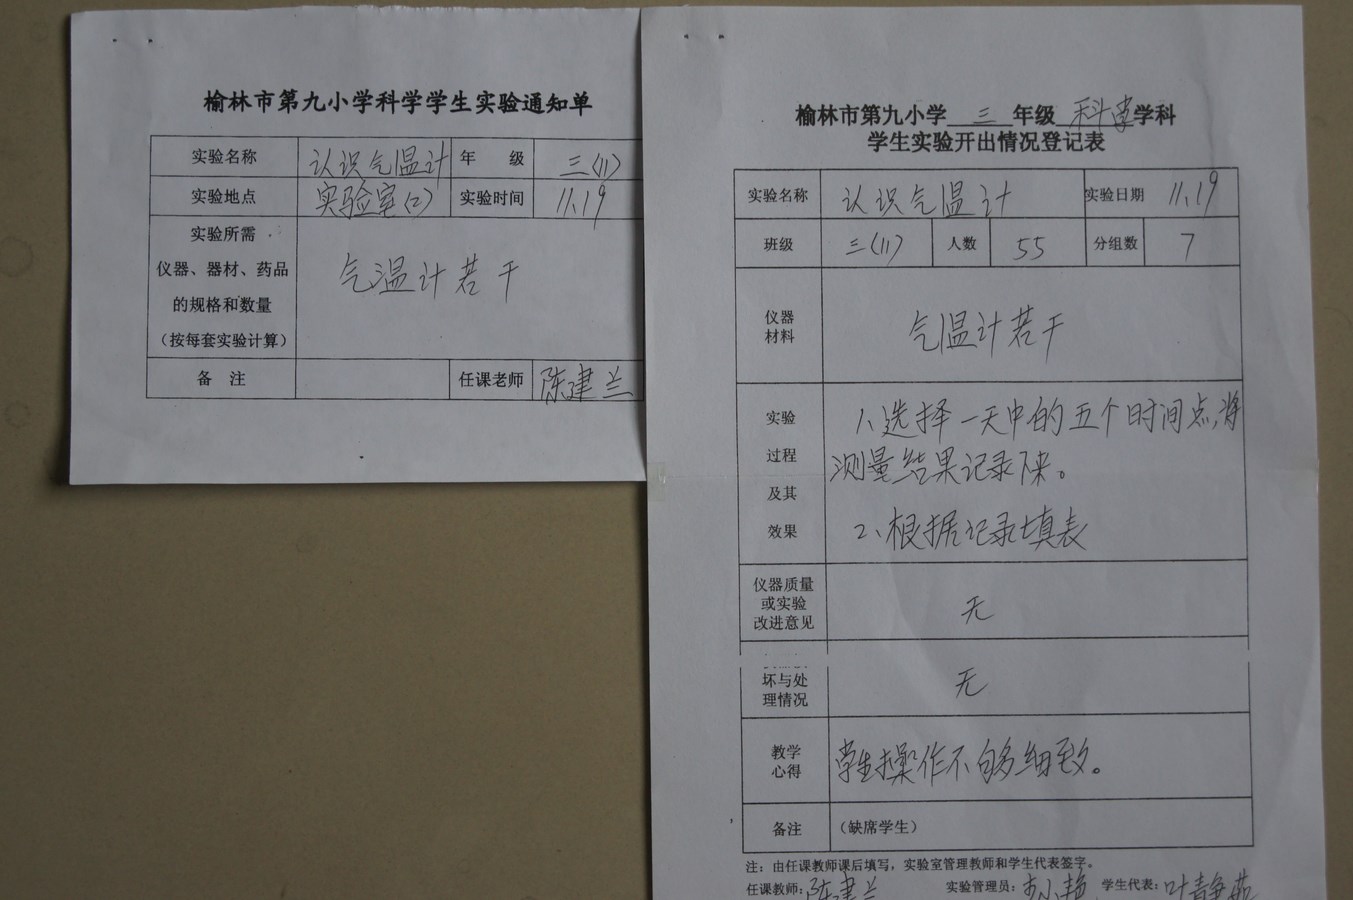 榆林市第九小学科学学生实验通知单
实验名称 认识气温计 年 级 三(11)
实验地点 实验室(2) 实验时间 11.19
实验所需
仪器、器材、药品
的规格和数量
(按每套实验计算)
气温计若干
备 注 任课老师 陈建兰
榆林市第九小学 三 年级 科学 学科
学生实验开出情况登记表
实验名称 认识气温计 实验日期 11.19
班级 三(11) 人数 55 分组数 7
仪器
材料
气温计若干
实验
过程
及其
效果
1、选择一天中的五个时间点,将
测量结果记录下来。
2、根据记录填表
仪器质量
或实验
改进意见
无
坏与处
理情况
无
教学
心得
学生操作不够细致。
备注 (缺席学生)
注:由任课教师课后填写,实验室管理教师和学生代表签字。
任课教师: 陈建兰 实验管理员: 学生代表: